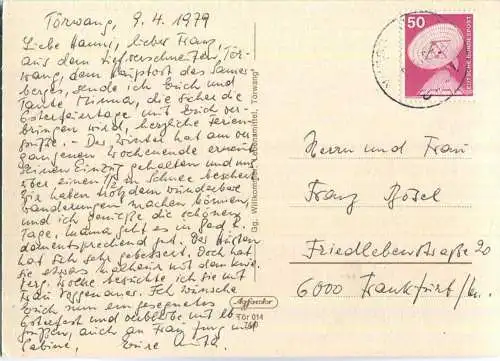 Törwang, 9.4.1979
Liebe Hanni, lieber Franz,
aus dem tiefverschneiten Tör-
wang, dem Hauptort des Samer-
berges, sende ich Euch und
Tante Minna, die sicher die
Osterfeiertage mit Euch ver-
bringen wird, herzliche Ferien-
grüße. - Der Winter hat am ver-
gangenen Wochenende erneut
seinen Einzug gehalten und uns
über einen 1/2 m Schnee beschert.
Wir haben trotzdem wunderbare
Wanderungen machen können,
und ich genieße die schönen
Tage. Mama geht es im
damentsprechend gut. Der Husten
hat sich sehr gebessert. Doch hat
sie etwas mit dem
Woche besuchte ich sie mit
Frau Ich wünsche
Euch nun ein gesegnetes
Osterfest und verbleibe mit lb.
Grüßen, auch an Frau Jung mit
Sabine, Eure
Gas. Willkommen, Lebensmittel, Törwang
Agfacolor
Tör 014
50
DEUTSCHE BUNDESPOST
Herrn und Frau
Franz Bösel
Friedlebenstraße 20
6000 Frankfurt/M.